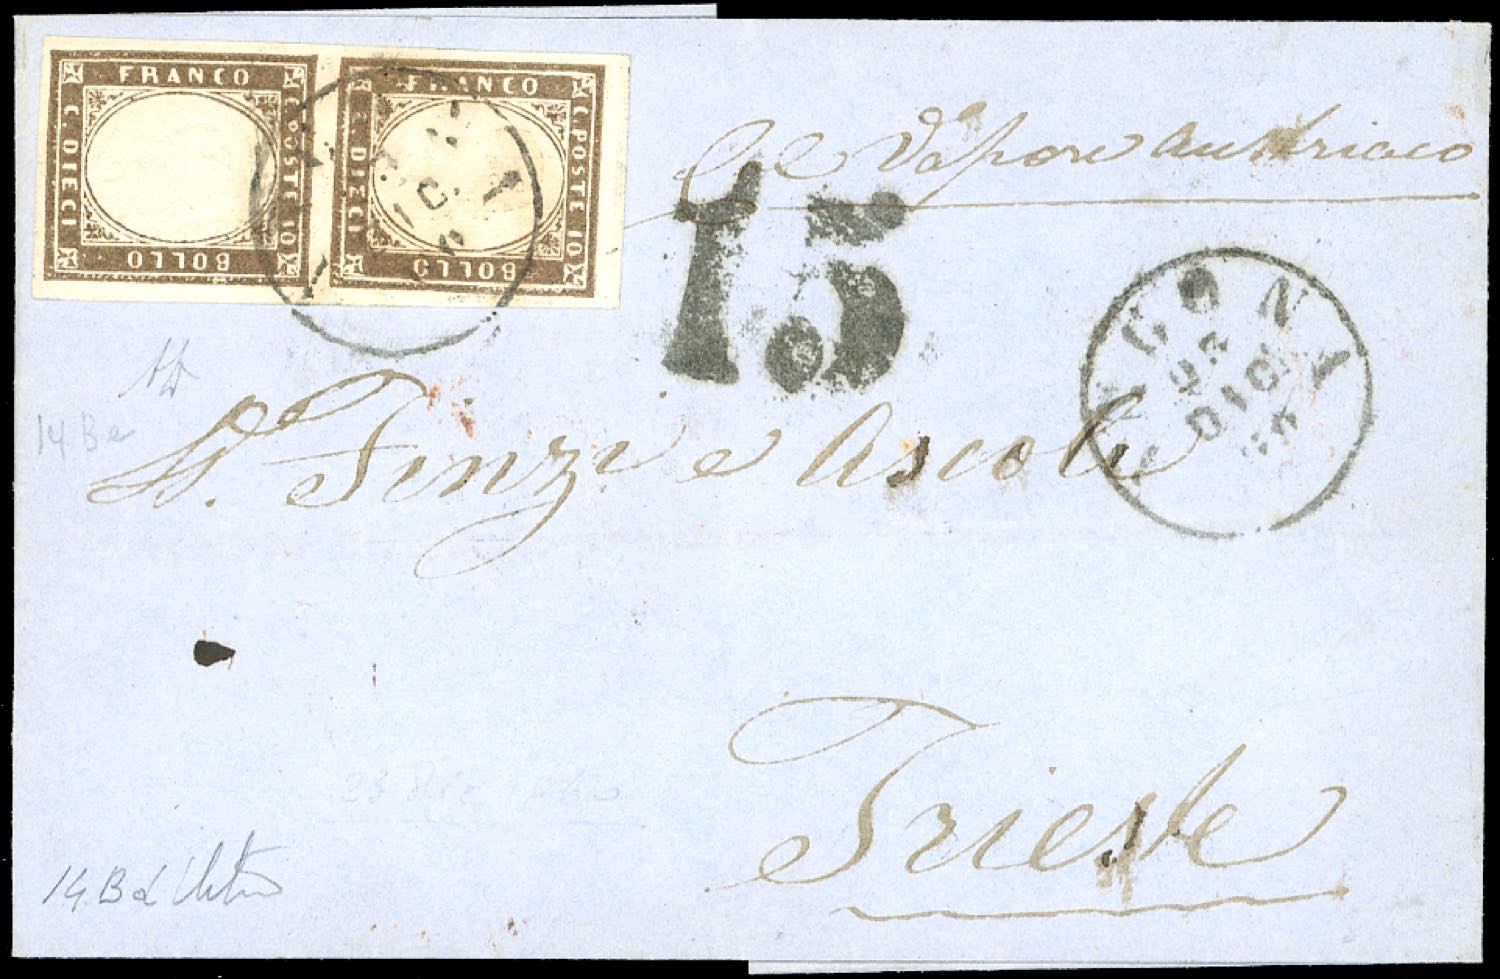 FRANCO
C. DIECI
C. POSTE 10
BOLLO
FRANCO
C. DIECI
C. POSTE 10
BOLLO
DIC
Vapore austriaco
15
ANCONA
23
DIC
14 B
Finzi e Ascoli
Trieste
14 B d